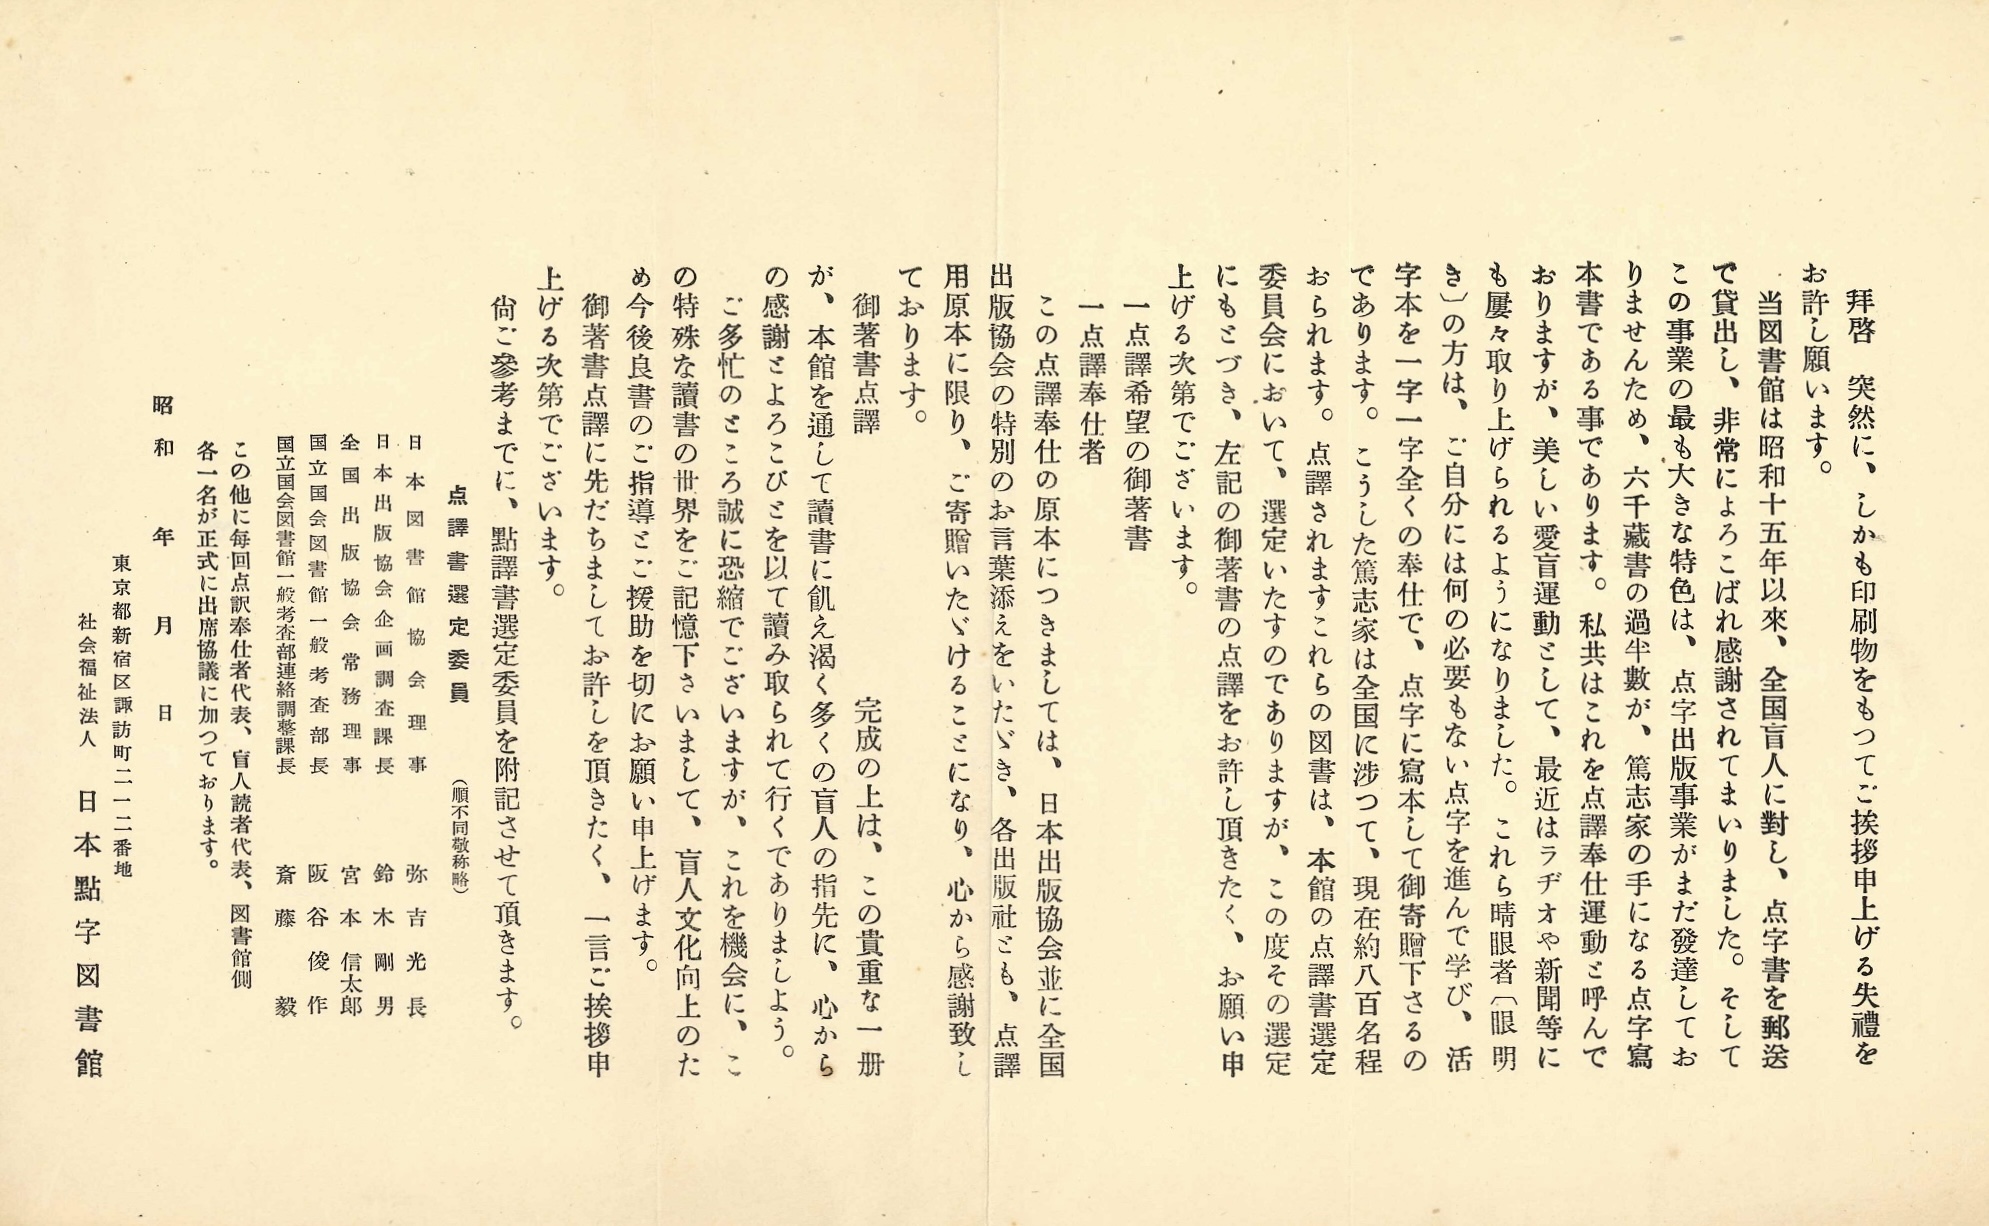 拝啓　突然に、しかも印刷物をもつてご挨拶申上げる失禮を
お許し願います。
当図書館は昭和十五年以來、全国盲人に對し、点字書を郵送
で貸出し、非常によろこばれ感謝されてまいりました。そして
この事業の最も大きな特色は、点字出版事業がまだ發達してお
りませんため、六千藏書の過半數が、篤志家の手になる点字寫
本書である事であります。私共はこれを点譯奉仕運動と呼んで
おりますが、美しい愛盲運動として、最近はラヂオや新聞等に
も屢々取り上げられるようになりました。これら晴眼者〔眼明
き〕の方は、ご自分には何の必要もない点字を進んで学び、活
字本を一字一字全くの奉仕で、点字に寫本して御寄贈下さるの
であります。こうした篤志家は全国に渉つて、現在約八百名程
おられます。点譯されますこれらの図書は、本館の点譯書選定
委員会において、選定いたすのでありますが、この度その選定
にもとづき、左記の御著書の点譯をお許し頂きたく、お願い申
上げる次第でございます。
一点譯希望の御著書
一点譯奉仕者
この点譯奉仕の原本につきましては、日本出版協会並に全国
出版協会の特別のお言葉添えをいたゞき、各出版社とも、点譯
用原本に限り、ご寄贈いたゞけることになり、心から感謝致し
ております。
御著書点譯　　　　　　　　　完成の上は、この貴重な一册
が、本館を通して讀書に飢え渇く多くの盲人の指先に、心から
の感謝とよろこびとを以て讀み取られて行くでありましよう。
ご多忙のところ誠に恐縮でございますが、これを機会に、こ
の特殊な讀書の世界をご記憶下さいまして、盲人文化向上のた
め今後良書のご指導とご援助を切にお願い申上げます。
御著書点譯に先だちましてお許しを頂きたく、一言ご挨拶申
上げる次第でございます。
尙ご參考までに、點譯書選定委員を附記させて頂きます。
点譯書選定委員　（順不同敬称略）
日本図書館協会理事　弥吉光長
日本出版協会企画調査課長　鈴木剛男
全国出版協会常務理事　宮本信太郎
国立国会図書館一般考査部長　阪谷俊作
国立国会図書館一般考査部連絡調整課長　斎藤毅
この他に毎回点訳奉仕者代表、盲人読者代表、図書館側
各一名が正式に出席協議に加つております。
昭和　年　月　日
東京都新宿区諏訪町二一二番地
社会福祉法人　日本點字図書館